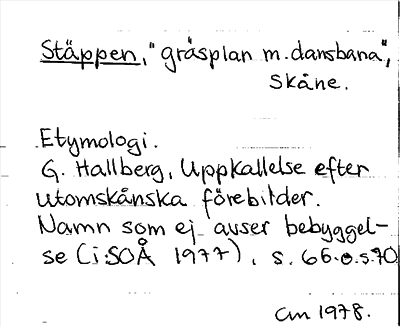 Stäppen, "gräsplan m. dansbana",
Skåne.
Etymologi.
G. Hallberg, Uppkallelse efter
utomskånska förebilder.
Namn som ej avser bebyggel-
se (i:SOÅ 1977), s. 66.o.s.70
CM 1978.